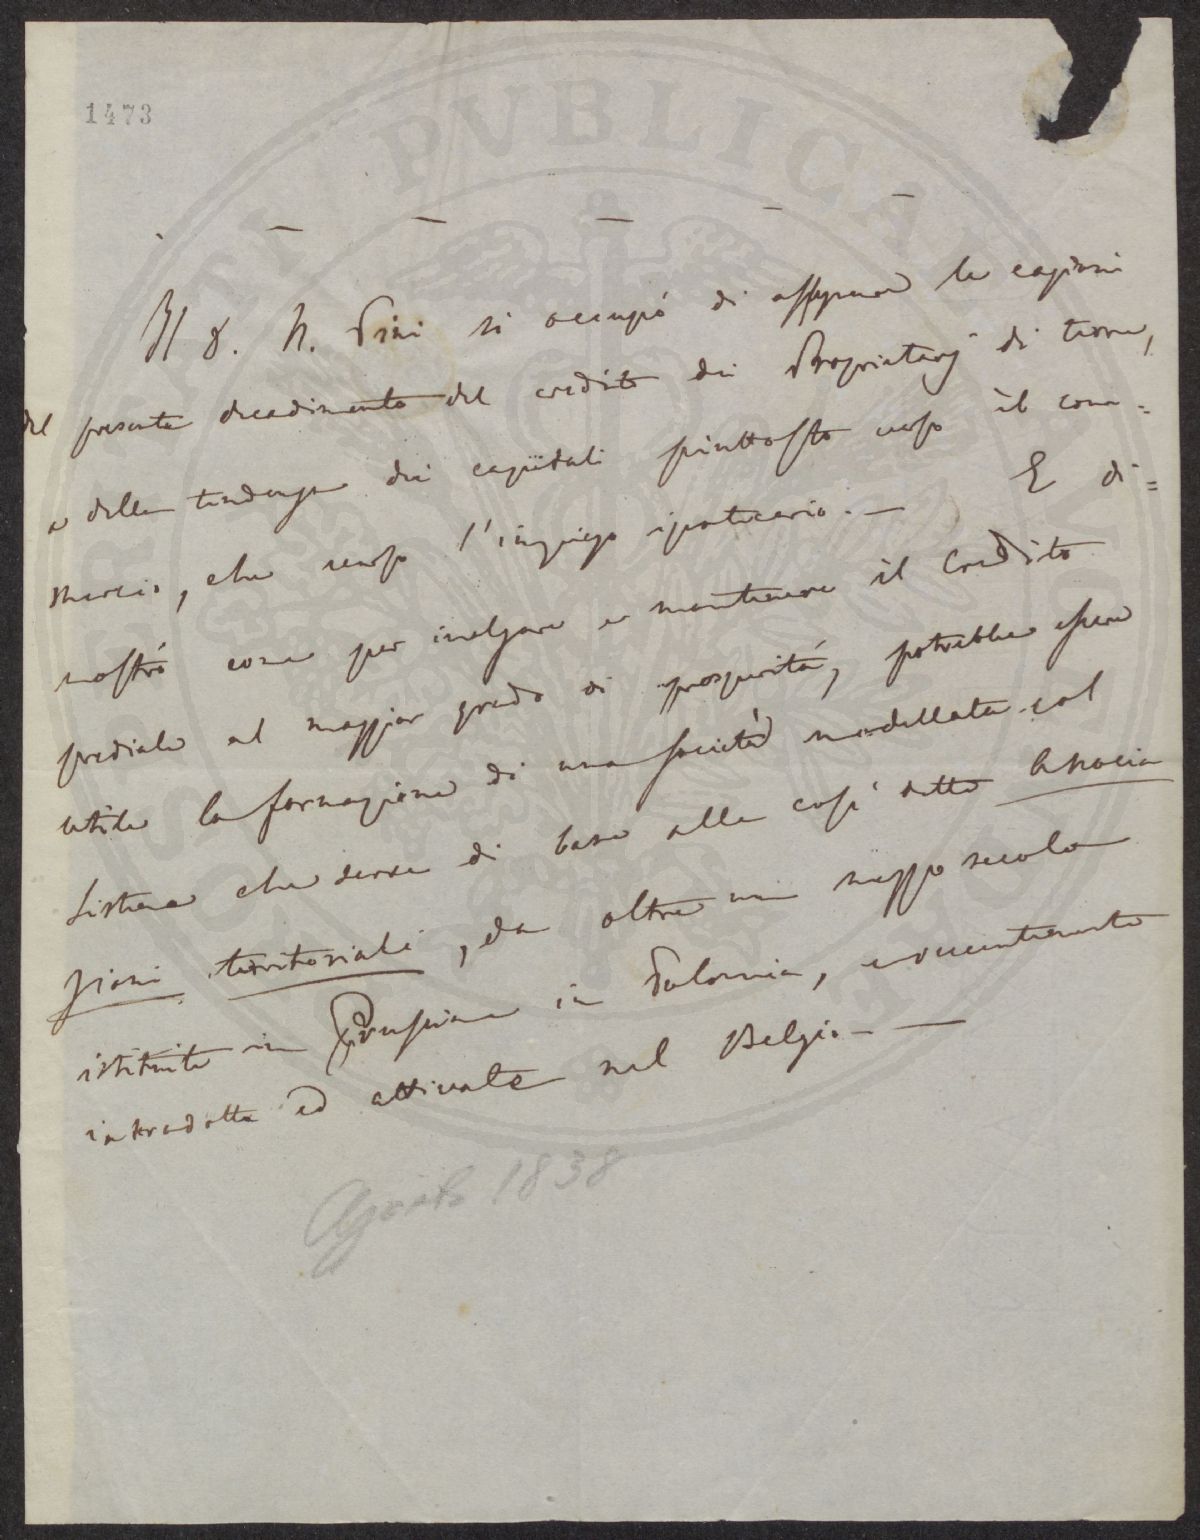 1473
Il S. N. Pini si occupò di assegnare le cagioni
del presente decadimento del credito dei Proprietarj di terre,
e della tendenza dei capitali piuttosto verso il com=
mercio, che verso l'impiego ipotecario. — E di=
mostrò come per inalzare e mantenere il Credito
prediale al maggior grado di prosperità, potrebbe essere
utile la formazione di una società modellata sul
sistema che serve di base alle così dette Associa
zioni territoriali, da oltre un mezzo secolo
istituite in Prussia e in Polonia, e recentemente
introdotte ed attivate nel Belgio. —
Agosto 1838
PVBLICA